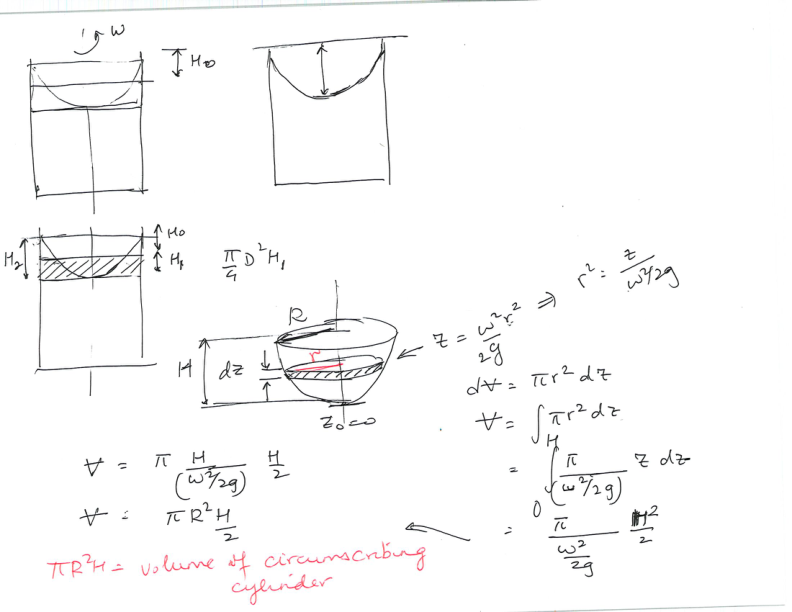 ω
H₀
H₂
H₀
H₁
π/4 D² H₁
R
H
dz
r
z₀=0
z = ω²r²/2g ⇒ r² = z/(ω²/2g)
dV = πr² dz
V = ∫ πr² dz
= ∫₀ᴴ π/(ω²/2g) z dz
= π/(ω²/2g) H²/2
V = π H/(ω²/2g) H/2
V = πR² H/2
πR²H = volume of circumscribing
cylinder